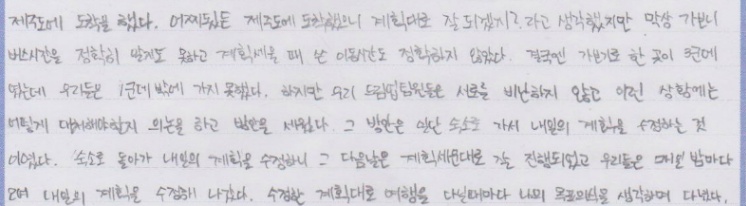 제주도에 도착을 했다. 어찌되었든 제주도에 도착했으니 계획대로 잘 되겠지? 라고 생각했지만 막상 가보니
버스시간을 정확히 알지도 못하고 계획세울 때 쓴 이동시간도 정확하지 않았다. 결국엔 가보기로 한 곳이 3군데
였는데 우리들은 1군데 밖에 가지 못했다. 하지만 우리 드림팀팀원들은 서로를 비난하지 않고 이런 상황에는
어떻게 대처해야할지 의논을 하고 방안을 세웠다. 그 방안은 일단 숙소로 가서 내일의 계획을 수정하는 것
이였다. 숙소로 돌아가 내일의 계획을 수정하니 그 다음날은 계획세운대로 잘 진행되었고 우리들은 매일 밤마다
모여 내일의 계획을 수정해 나갔다. 수정한 계획대로 여행을 다닐때마다 나의 목표의식을 생각하며 다녔다.